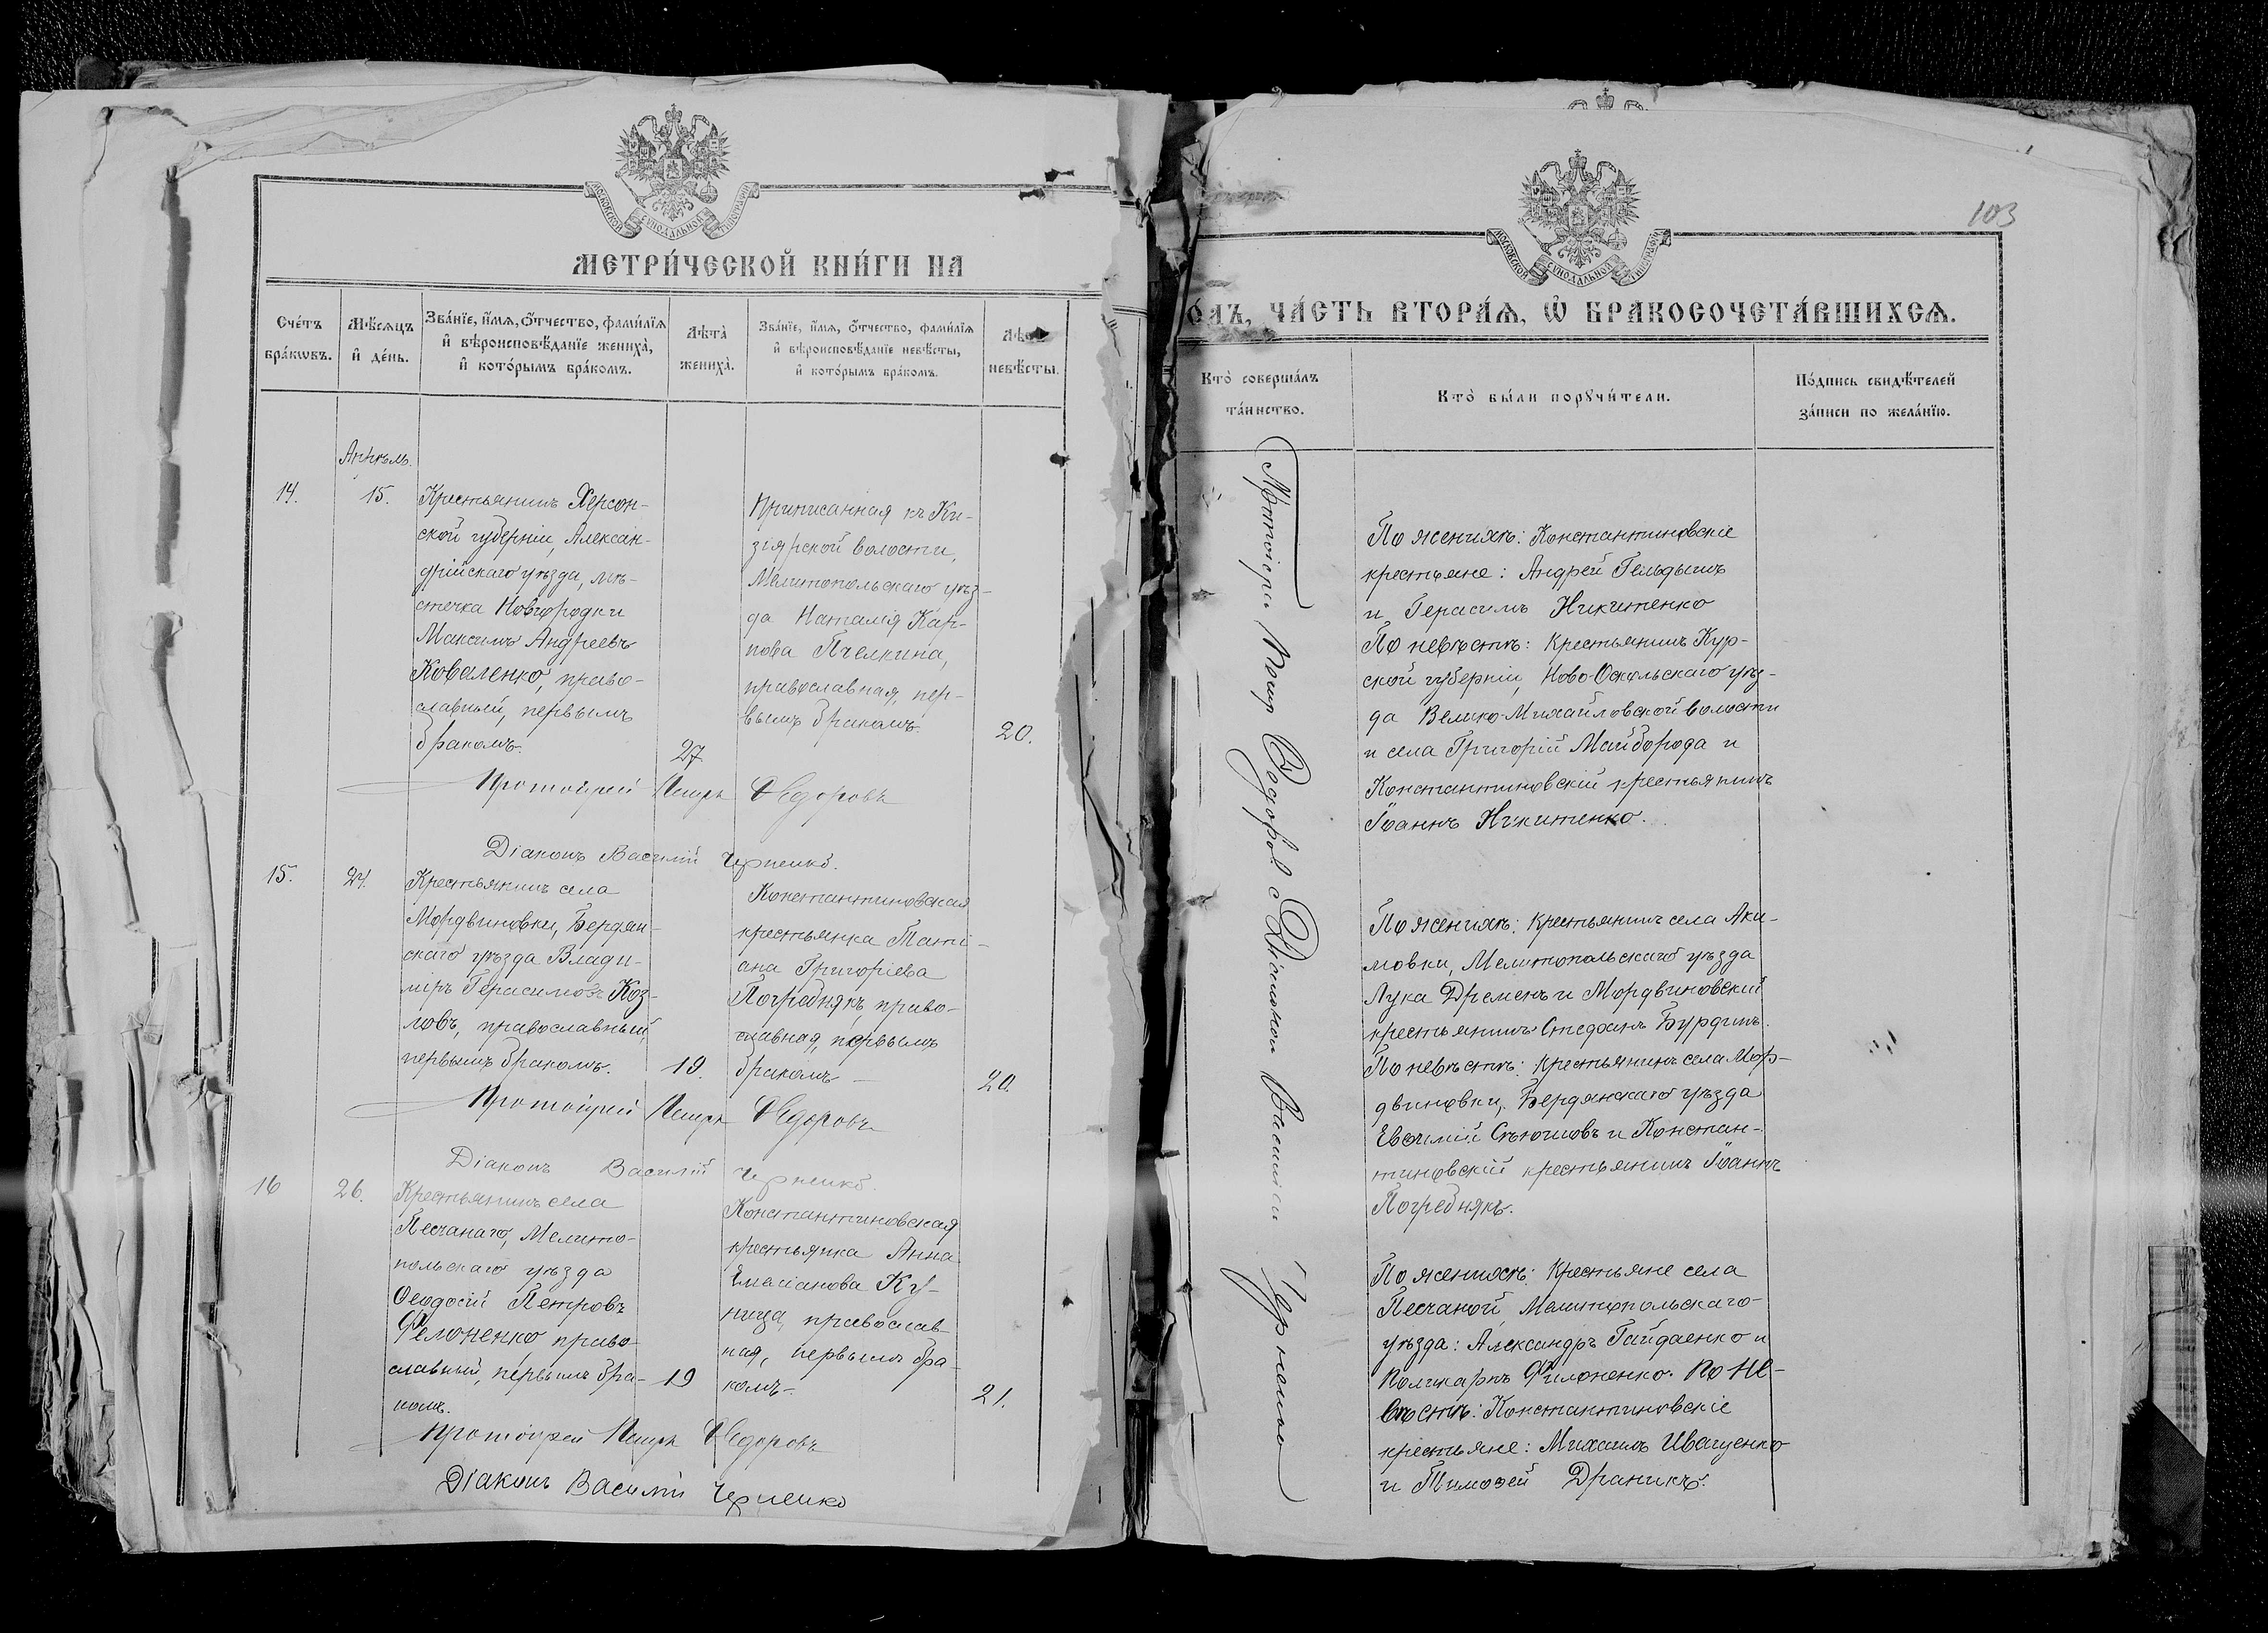 МОСКОВСКОЙ СѴНОДАЛЬНОЙ ТИПОГРАФІИ
МЕТРИ́ЧЕСКОЙ КНИ́ГИ НА
Сче́тъ бра́кѡвъ.
Мѣ́сяцъ и҆ де́нь.
Зва́нїе, и҆́мя, ѻ҆́тчество, фами́лїя
и҆ вѣроисповѣ́данїе жениха̀,
и҆ кото́рымъ бра́комъ.
Лѣта̀ жениха̀.
Зва́нїе, и҆́мя, ѻ҆́тчество, фами́лїя
и҆ вѣроисповѣ́данїе невѣ́сты,
и҆ кото́рымъ бра́комъ.
невѣ́сты.
Апрѣль.
14.
15.
Крестьянинъ Херсон-
ской губерніи, Алексан-
дрійскаго уѣзда, мѣ-
стечка Новгородки
Максимъ Андреевъ
Коваленко, право-
славный, первымъ
бракомъ.
27
Приписанная къ Ки-
зіярской волости,
Мелитопольскаго уѣз-
да Наталія Кар-
пова Пчелкина,
православная, пер-
вымъ бракомъ.
20.
Протоіерей Петръ Ѳедоровъ
Діаконъ Василій Черненко.
15.
24.
Крестьянинъ села
Мордвиновки, Бердян-
скаго уѣзда Влади-
міръ Герасимовъ Коз-
ловъ, православный,
первымъ бракомъ.
19.
Константиновская
крестьянка Таті-
ана Григоріева
Погребнякъ, право-
славная, первымъ
бракомъ
20
Протоіерей Петръ Ѳедоровъ
Діаконъ Василій Черненко.
16
26.
Крестьянинъ села
Песчанаго, Мелито-
польскаго уѣзда
Ѳеодосій Петровъ
Филоненко право-
славный, первымъ бра-
комъ.
19
Константиновская
крестьянка Анна
Ку-
ница, православ-
ная, первымъ бра-
комъ
21.
Протоіерей Петръ Ѳедоровъ
Діаконъ Василій Черненко
103
МОСКОВСКОЙ СѴНОДАЛЬНОЙ ТИПОГРАФІИ
ЧА́СТЬ ВТОРА́Я, Ѡ҆ БРАКОСОЧЕТА́ВШИХСЯ.
Кто̀ соверша́лъ та́инство.
Кто̀ бы́ли порꙋчи́тели.
По́дпись свидѣ́телей за́писи по жела́нїю.
Протоіерей Петръ Ѳедоровъ с Діакономъ Василіемъ Черненко
По женихѣ: Константиновскіе
крестьяне: Андрей Гельдышъ
и Герасимъ Никитенко
По невѣстѣ: крестьянинъ Кур-
ской губерніи, Ново-Оскольскаго уѣз-
да Велико-Михайловской волости
и села Григорій Майборода и
Константиновскій крестьянинъ
Іоаннъ Никитенко.
По женихѣ: крестьянинъ села Аки-
мовки, Мелитопольскаго уѣзда
Лука Дременъ и Мордвиновскій
крестьянинъ Стефанъ Бурдинъ.
По невѣстѣ: крестьянинъ села Мор-
двиновки, Бердянскаго уѣзда
Евѳимій и Констан-
тиновскій крестьянинъ Іоаннъ
Погребнякъ.
По женихѣ: Крестьяне села
Песчаной, Мелитопольскаго
уѣзда: Александръ Гайдаенко и
Поликарпъ Филоненко. По не-
вѣстѣ: Константиновскіе
крестьяне: Михаилъ Иващенко
и Тимоѳей Драникъ.